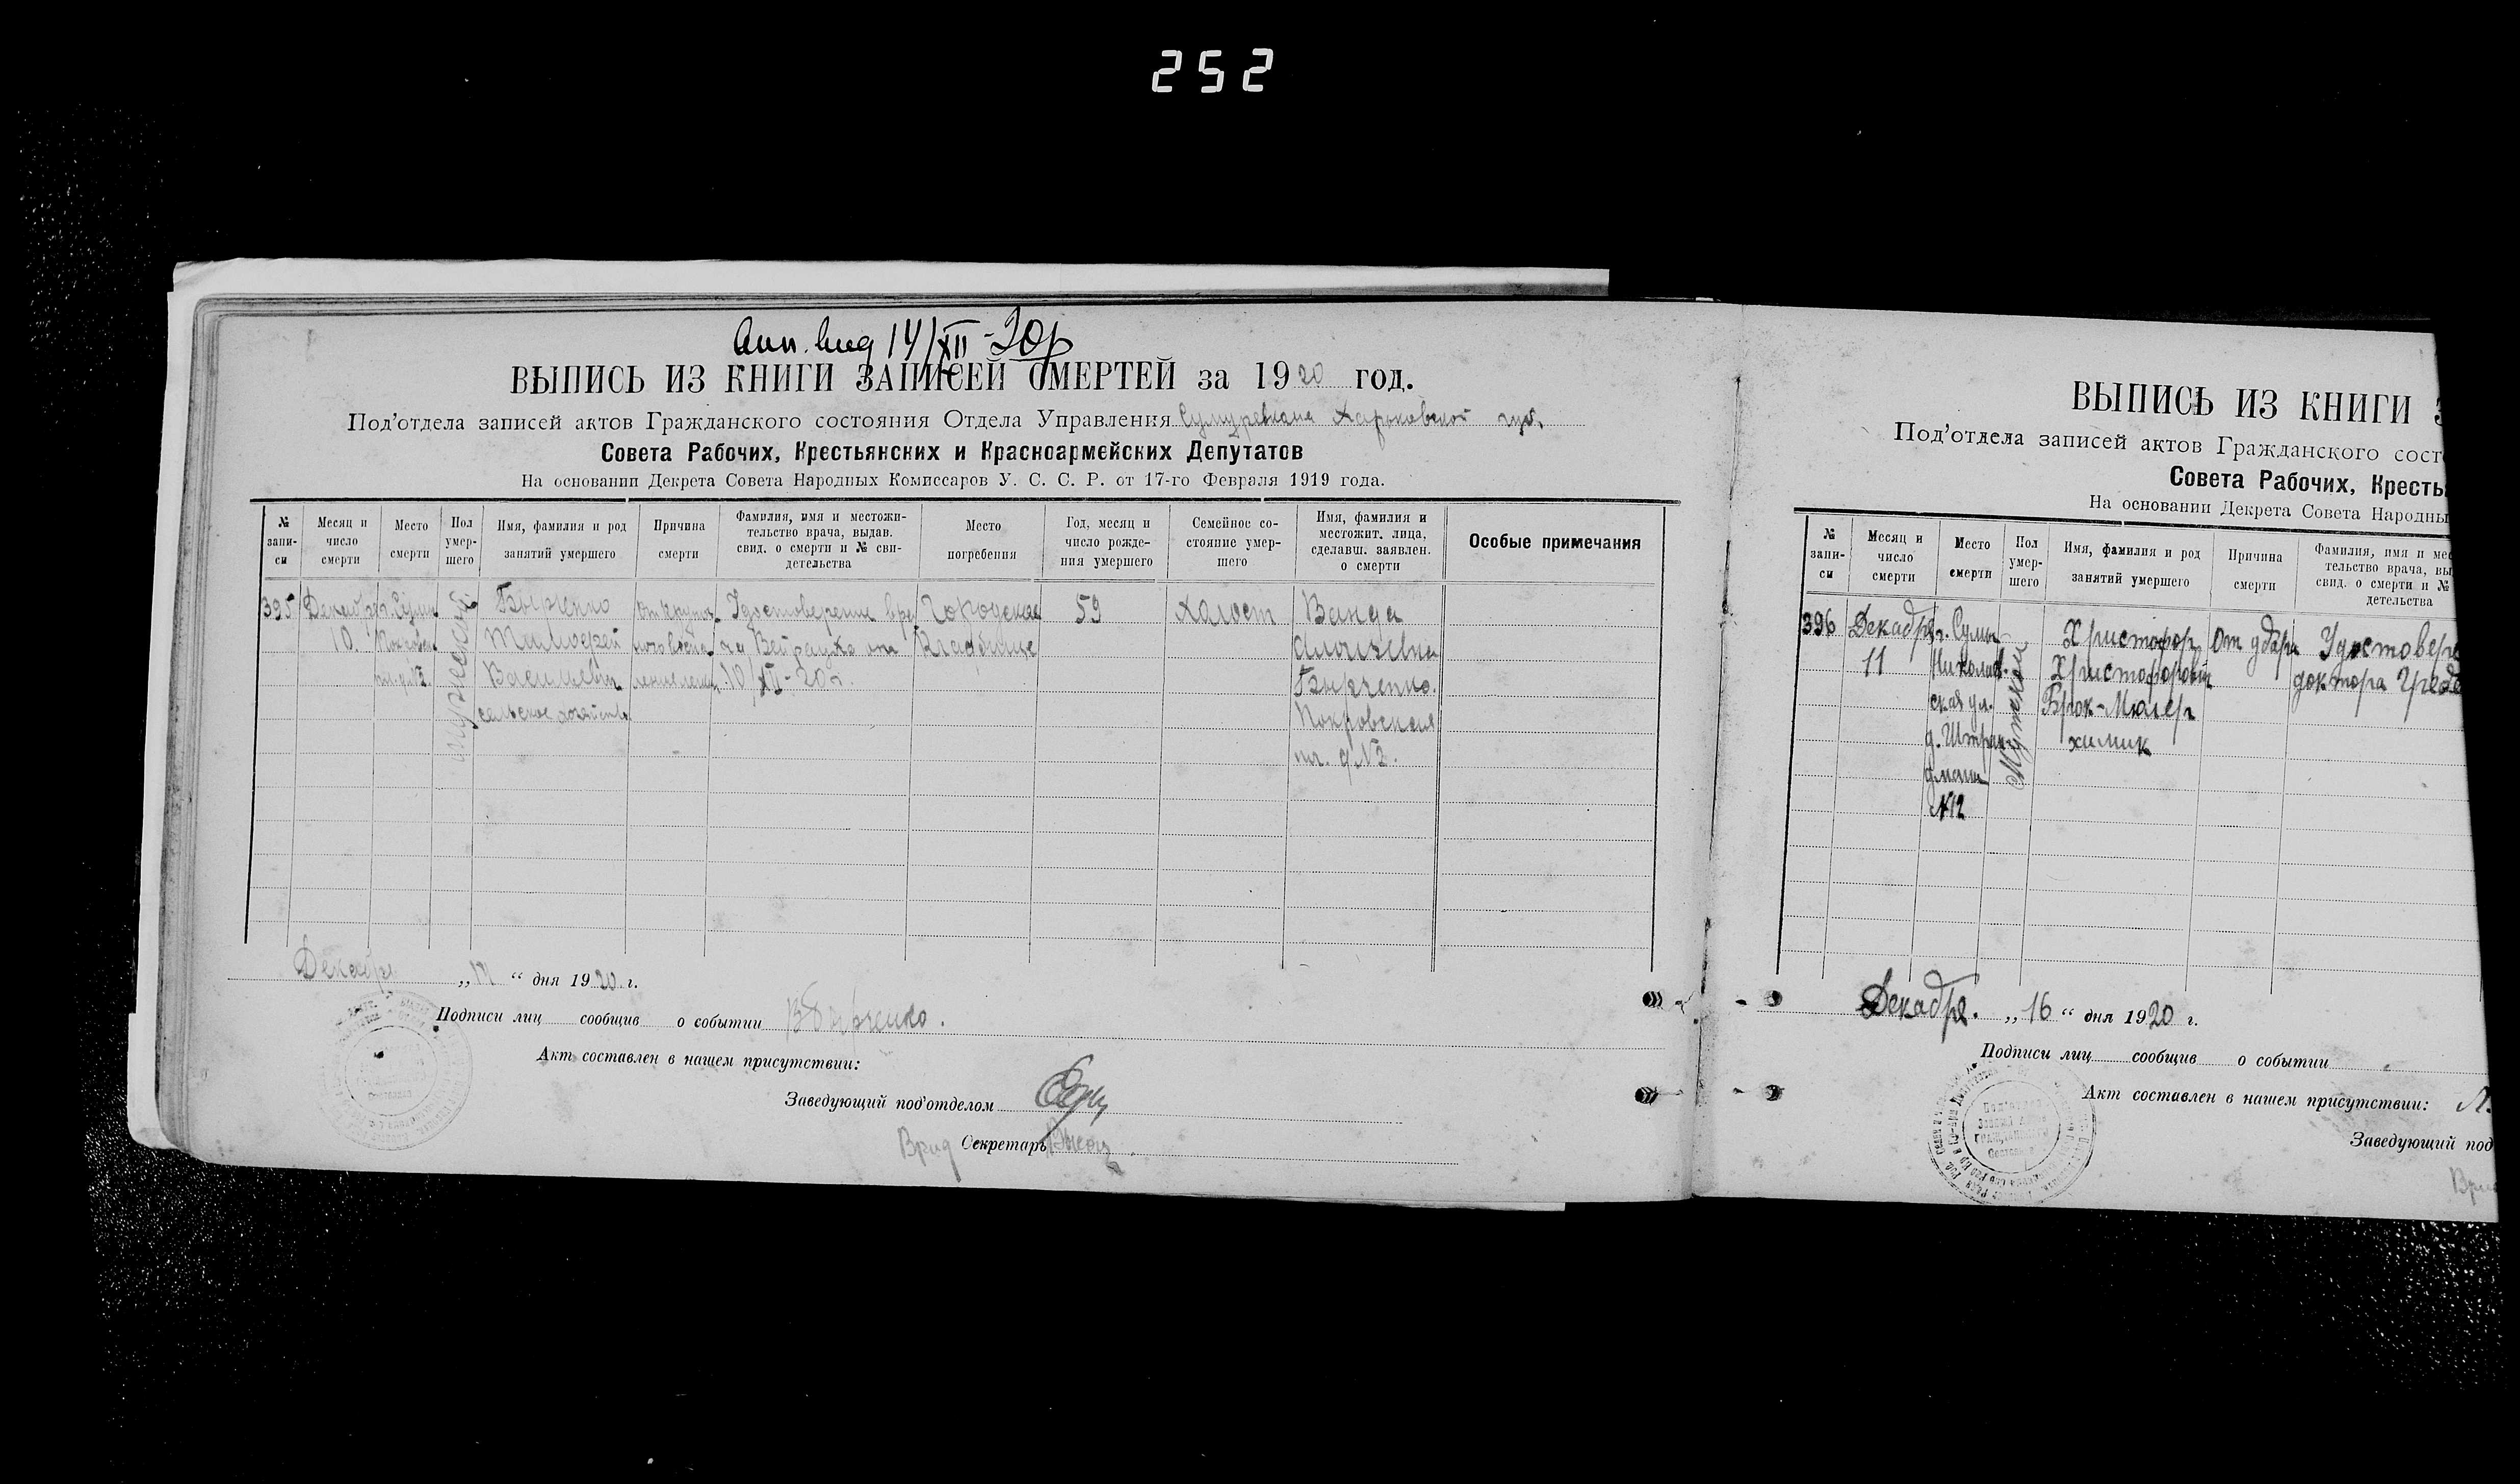 252
14/XII-20р
ВЫПИСЬ ИЗ КНИГИ ЗАПИСЕЙ СМЕРТЕЙ за 1920 год.
Под'отдела записей актов Гражданского состояния Отдела Управления Сумуревкома Харьковской губ.
Совета Рабочих, Крестьянских и Красноармейских Депутатов
На основании Декрета Совета Народных Комиссаров У. С. С. Р. от 17-го Февраля 1919 года.
№ запи-си
Месяц и число смерти
Место смерти
Пол умер-шего
Имя, фамилия и род занятий умершего
Причина смерти
Фамилия, имя и местожи-тельство врача, выдав. свид. о смерти и № сви-детельства
Место погребения
Год, месяц и число рожде-ния умершего
Семейное со-стояние умер-шего
Имя, фамилия и местожит. лица, сделавш. заявлен. о смерти
Особые примечания
395
Декабря
10.
г. Сумы
мужской
Тимофей
Васильевич
сельское хозяйство
Удостоверение вра
ча от
10/XII-20г.
Городское
Кладбище
59
Холост
Ванда
Покровская
пл. д №3.
Декабря „ “ дня 1920 г.
Подписи лиц сообщив о событии
Акт составлен в нашем присутствии:
Заведующий под'отделом
Врид Секретарь
ВЫПИСЬ ИЗ КНИГИ З
Под'отдела записей актов Гражданского сост
Совета Рабочих, Кресть
На основании Декрета Совета Народны
№ запи-си
Месяц и число смерти
Место смерти
Пол умер-шего
Имя, фамилия и род занятий умершего
Причина смерти
Фамилия, имя и мес
тельство врача, вы
свид. о смерти и №
детельства
396
Декабря
11
г. Сумы
Николаев
ская ул.
д. Штран
дмана
№12
Мужской
Христофор
Христофорович
Брок-Мюлер
химик
От удара
Удостовере
доктора
Декабря. „16“ дня 1920 г.
Подписи лиц сообщив о событии
Акт составлен в нашем присутствии:
Заведующий под